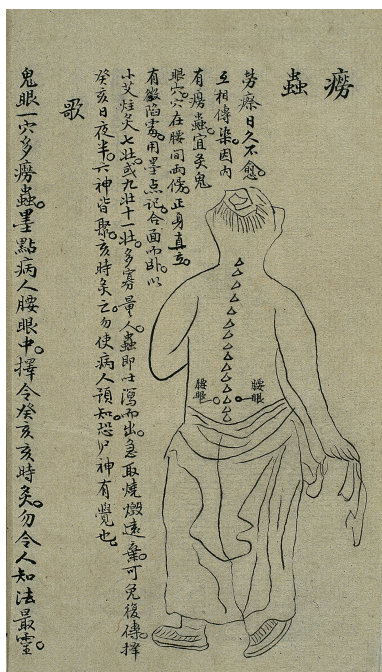 癆蟲
勞瘵日久不愈。
互相傳染。因内
有癆蟲。宜灸鬼
眼穴。穴在腰間兩傍。正身直立。
有微陷處。用墨点記。合面而卧。以
小艾炷灸七壮。或九壮十一壮。多寡量人。蟲即吐瀉而出。急取燒燬遠棄。可免後傳。擇
癸亥日夜半。六神皆聚。亥時灸之。勿使病人預知。恐尸神有覺也。
歌
鬼眼一穴灸癆蟲。墨點病人腰眼中。擇令癸亥亥時灸。勿令人知法最靈。
腰眼
腰眼